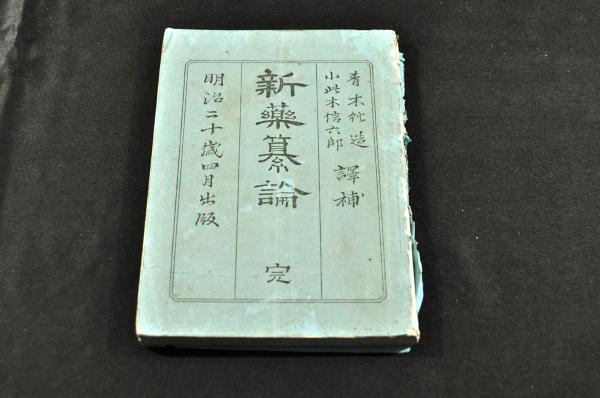 青木純造
小此木信六郎
譯補
新藥纂論 完
明治二十歳四月出版